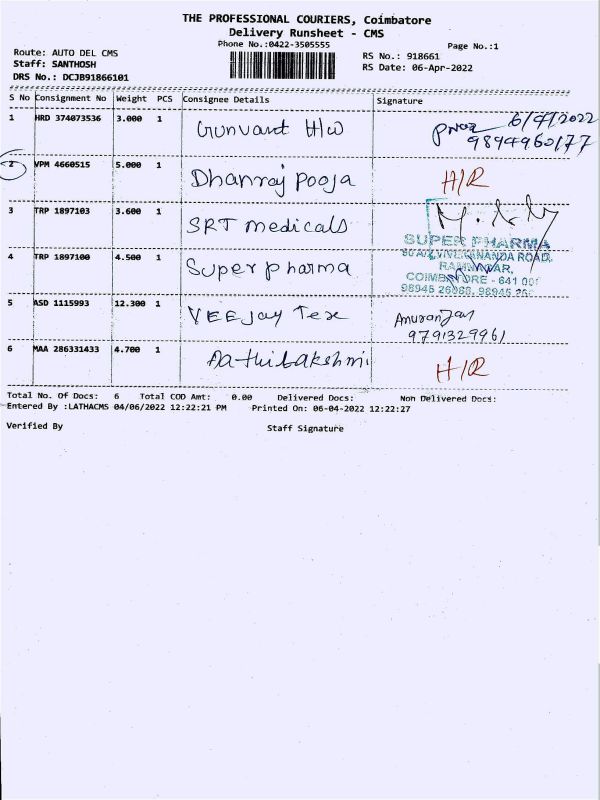 THE PROFESSIONAL COURIERS, Coimbatore
Delivery Runsheet - CMS
Phone No.:0422-3505555
Page No.:1
Route: AUTO DEL CMS
RS No.: 918661
Staff: SANTHOSH
RS Date: 06-Apr-2022
DRS No.: DCJB91866101
S No Consignment No Weight PCS Consignee Details Signature
1 HRD 374073536 3.000 1 Gunvant H/W 6/4/2022
9894960177
2 VPM 4660515 5.000 1 Dhanraj Pooja H/R
3 TRP 1897103 3.600 1 SRT medicals
4 TRP 1897100 4.500 1 Super pharma
SUPER PHARMA
VIVEKANANDA ROAD,
RAMNAGAR,
COIMBATORE - 641 00
98945 26088, 98945
5 ASD 1115993 12.300 1 VEEJay Tex Anuranjan
9791329961
6 MAA 286331433 4.700 1 H/R
Total No. Of Docs: 6 Total COD Amt: 0.00 Delivered Docs: Non Delivered Docs:
Entered By :LATHACMS 04/06/2022 12:22:21 PM Printed On: 06-04-2022 12:22:27
Verified By Staff Signature